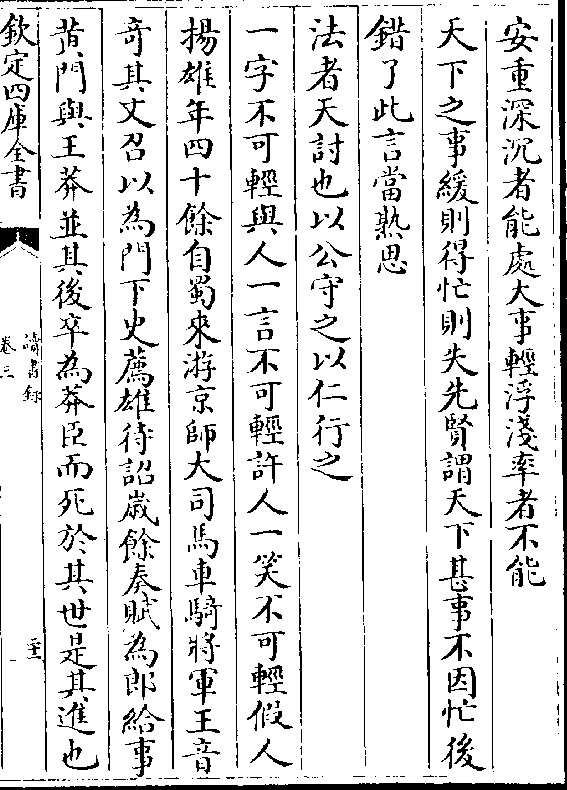 安重深沉者能處大事輕浮淺率者不能
天下之事緩則得忙則失先賢謂天下甚事不因忙後
錯了此言當熟思
法者天討也以公守之以仁行之
一字不可輕與人一言不可輕許人一笑不可輕假人
揚雄年四十餘自蜀來游京師大司馬車騎將軍王音
奇其文召以為門下史薦雄待詔嵗餘奏賦為郎給事
黄門與王莽並其後卒為莽臣而死於其世是其進也
欽定四庫全書
讀書録
卷三